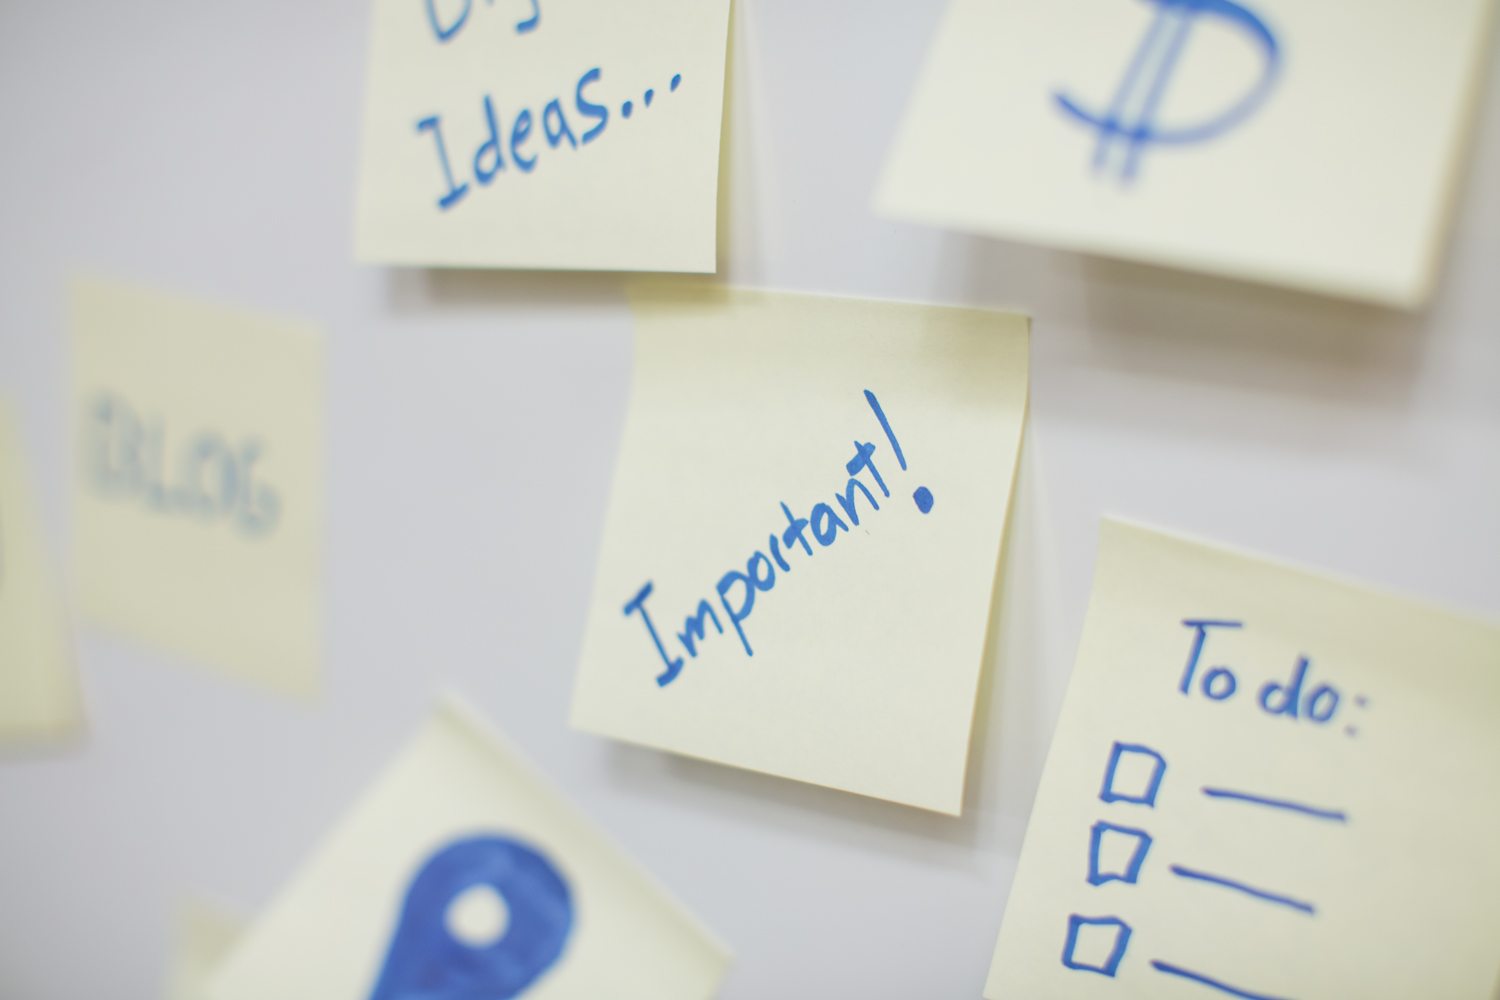 Ideas...
$
BLOG
Important!
To do: